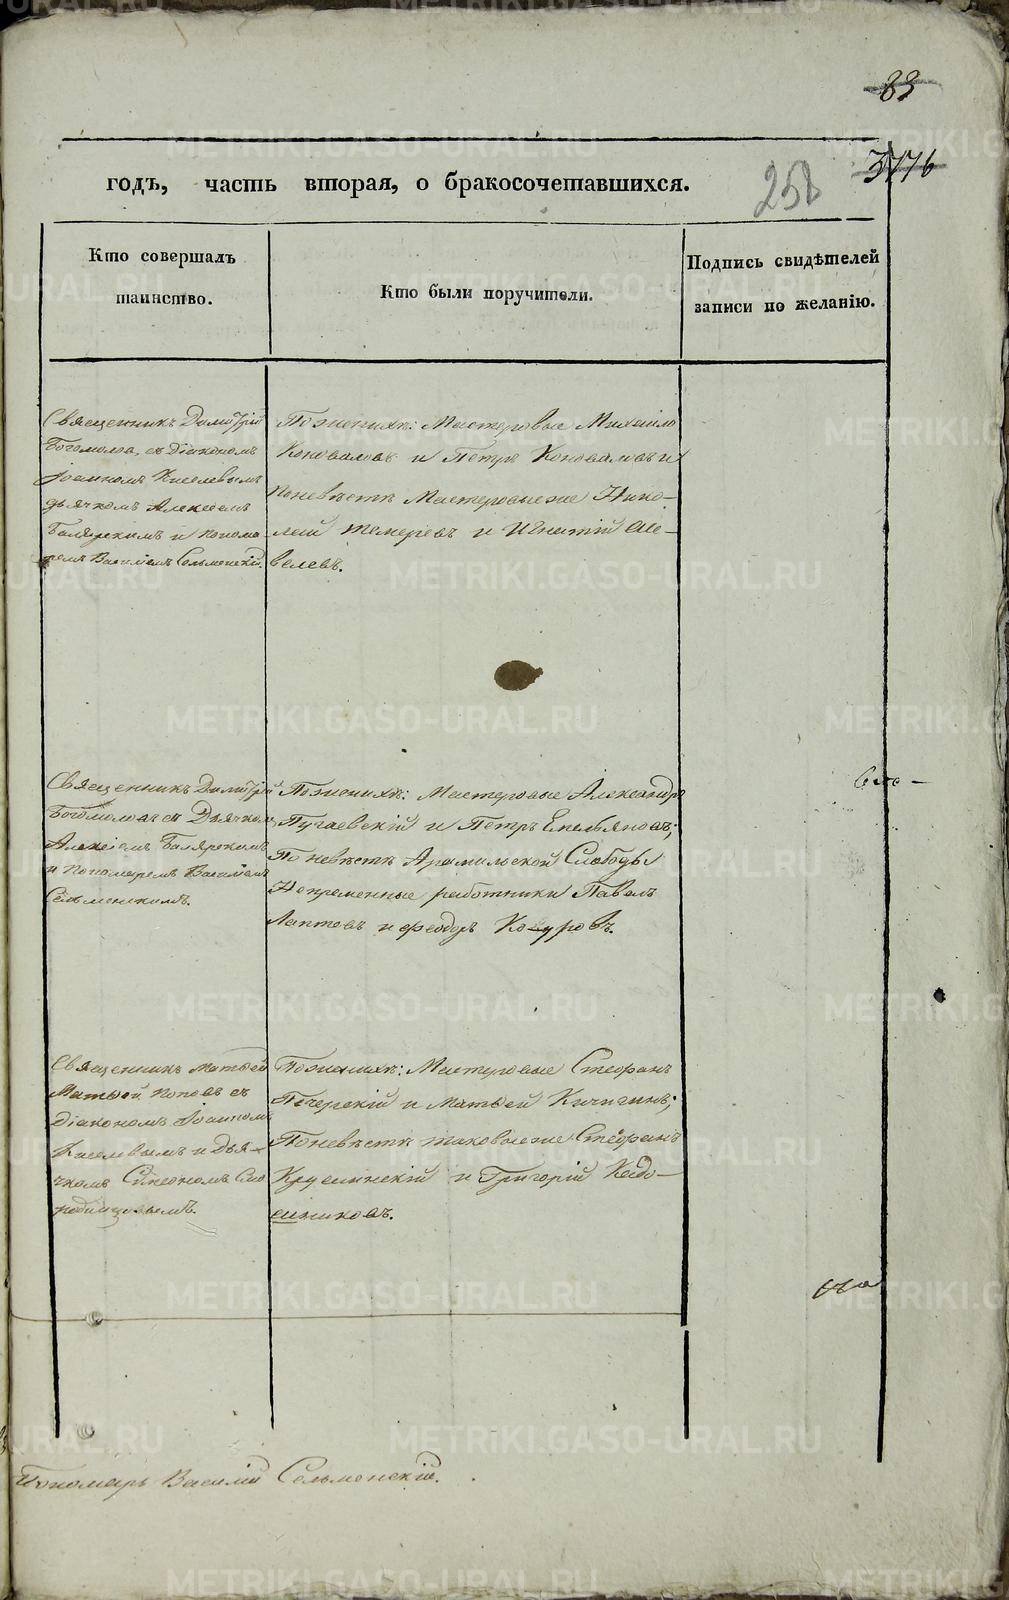 83
3776
258
годъ, часть вторая, о бракосочетавшихся.
Кто совершалъ
таинство.
Кто были поручители.
Подпись свидѣтелей
записи по желанію.
Священникъ Димитрій
Богомолов, съ діакономъ
Іоанномъ Киселевымъ
дьячкомъ Алексеемъ
Балярскимъ и понома
ремъ Василіемъ Сельменскій.
По женихѣ: Мастеровые Михайло
Коноваловъ и Петръ Коноваловъ и
по невѣстѣ Мастеровые же Нико-
лай Темеревъ и Игнатій Ше-
велевъ.
Священникъ Димитрій
Богомоловъ съ Дьячкомъ
Алексіемъ Балярскимъ
и пономаремъ Василіемъ
Сельменскимъ.
По женихѣ: Мастеровые Александръ
Пугаевскій и Петръ Емельяновъ;
По невѣстѣ Арамильской Слободы
Непременные работники Павелъ
Лаптевъ и Феодоръ Кожуровъ.
Священникъ Матвей
Матвей Поповъ съ
діакономъ Іоанномъ
Киселевымъ и Дья-
чкомъ Симеономъ Смо
родинцовымъ.
По женихѣ: Мастеровые Стефанъ
Печерскій и Матвей Кичигинъ;
По невѣстѣ таковые же Стефанъ
Крусинскій и Григорій Кадо-
шниковъ.
Пономарь Василій Сельменскій.
METRIKI.GASO-URAL.RU